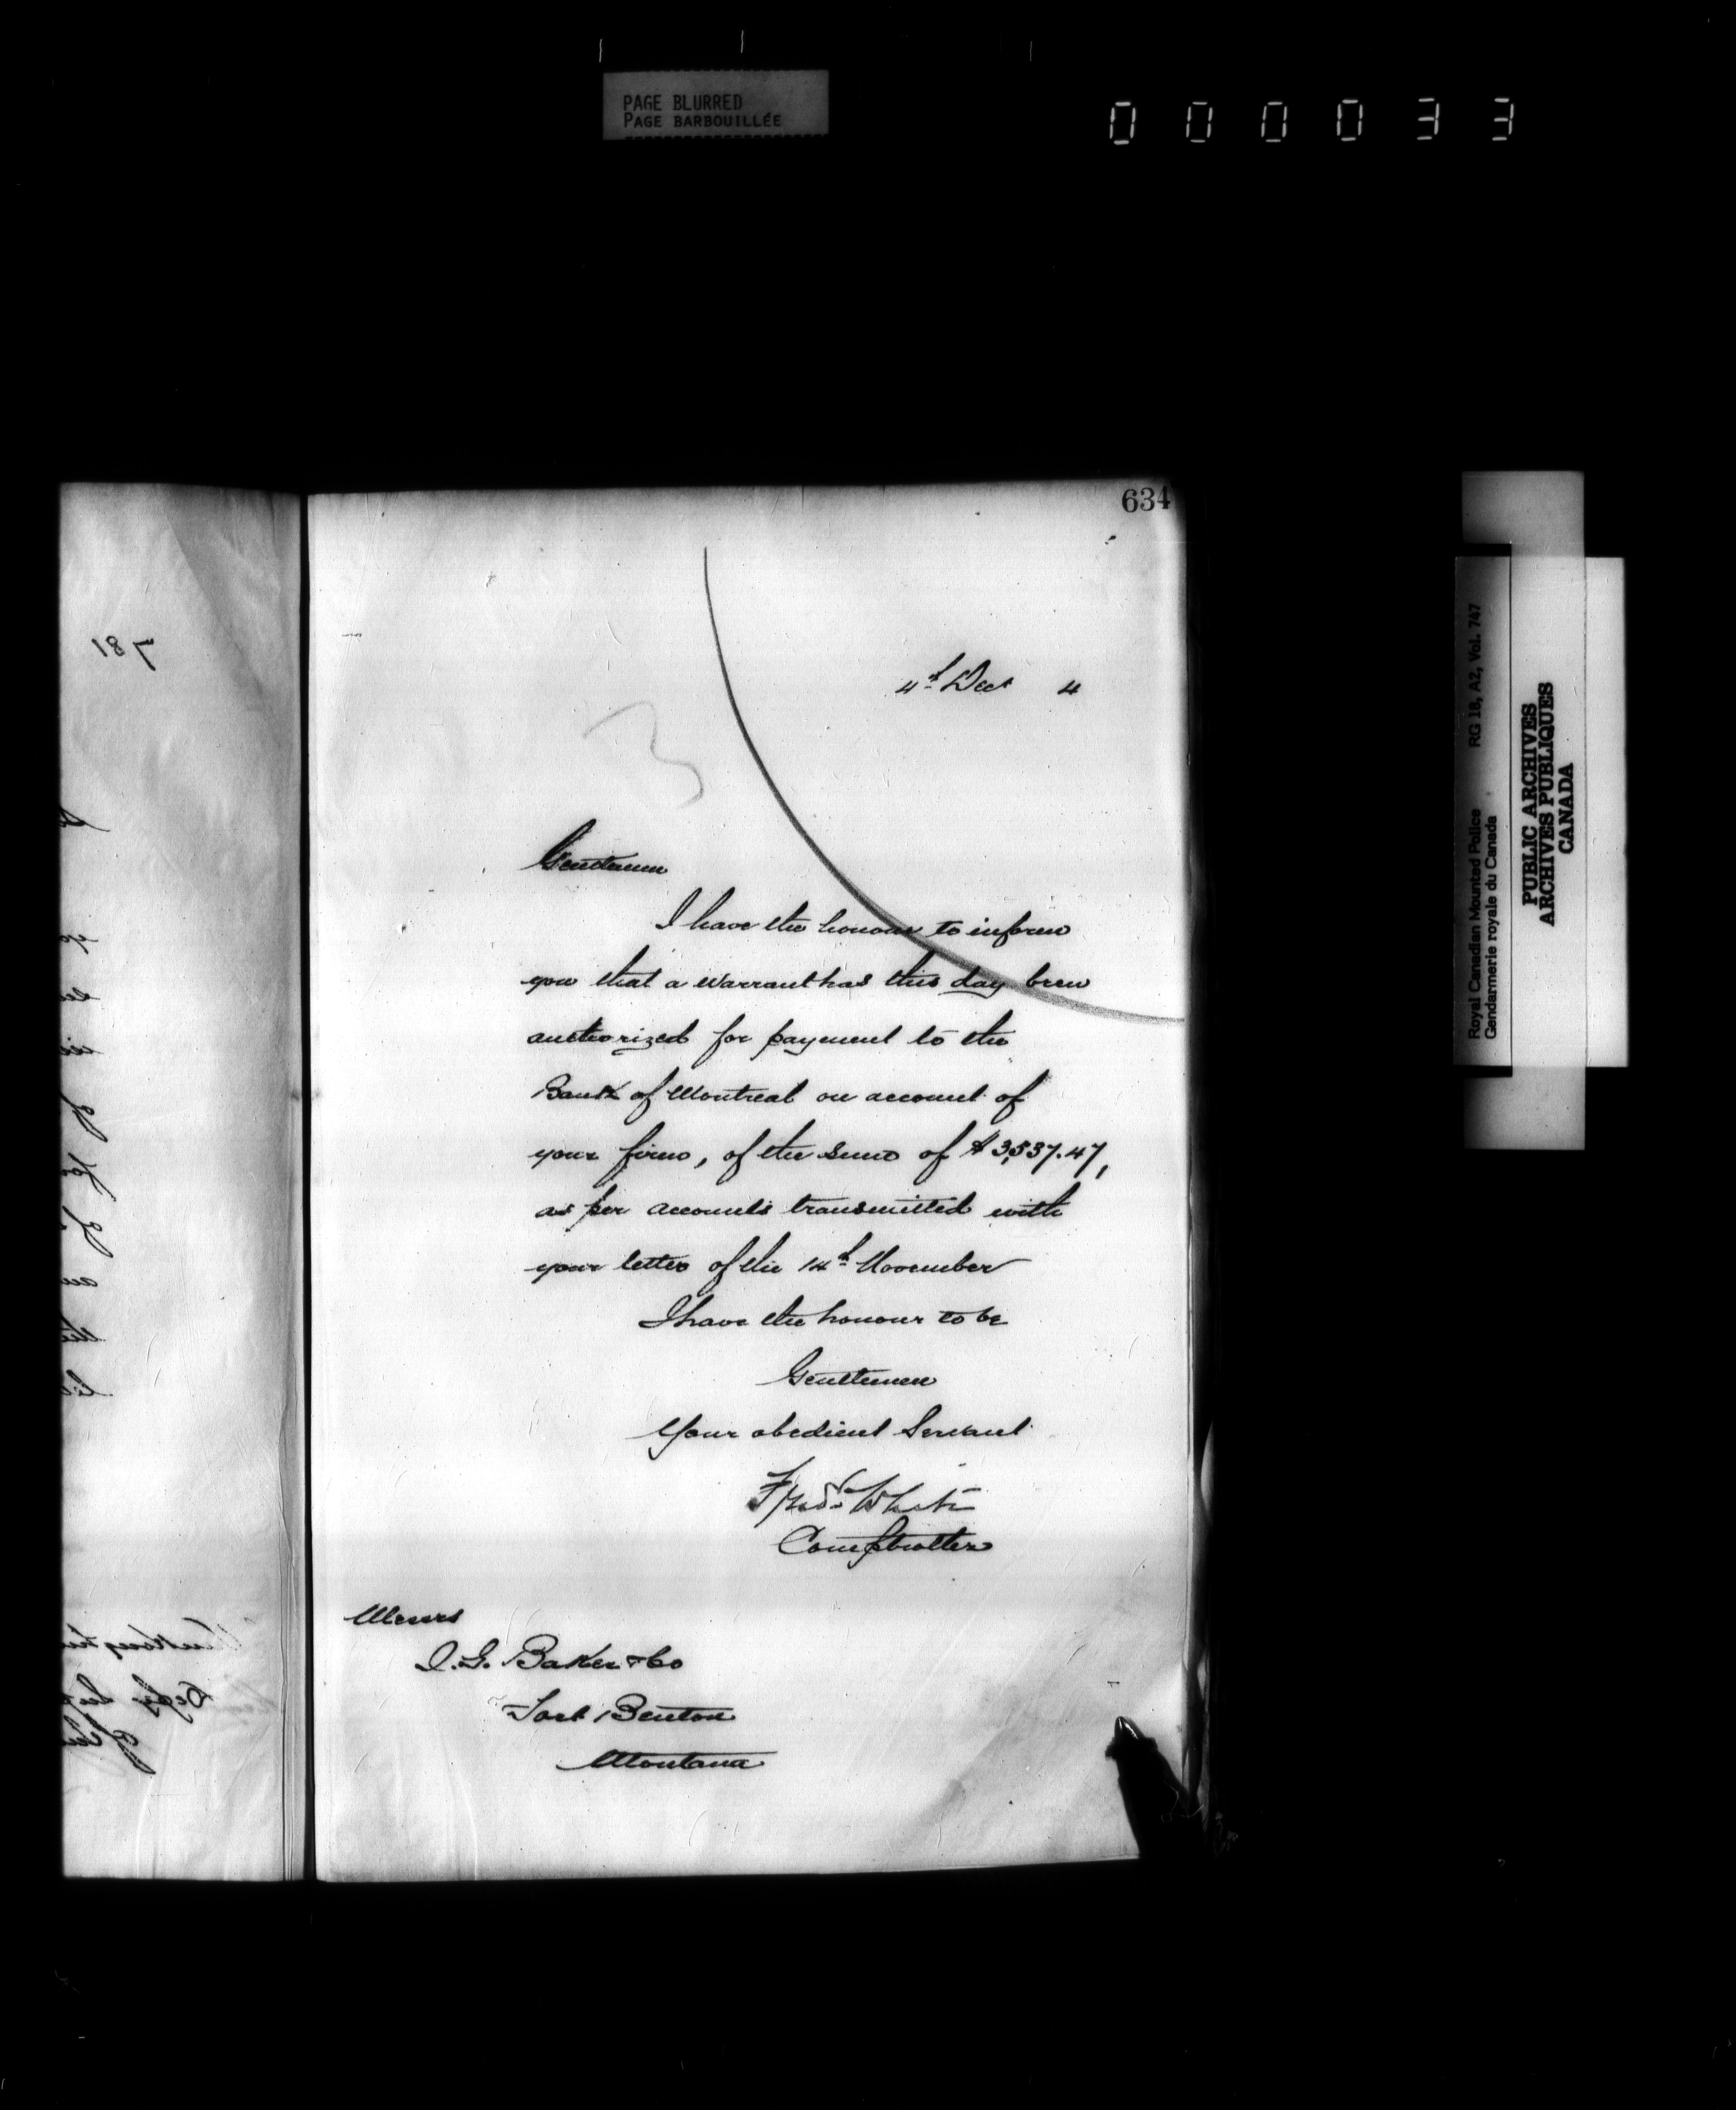 PAGE BLURRED
PAGE BARBOUILLÉE
000033
634
781
4th Dect 4
Gentlemen
I have the honour to inform
you that a Warrant has this day been
authorized for payment to the
Bank of Montreal on account of
your firm, of the sum of $3,537.47,
as per accounts transmitted with
your letter of the 14th November
I have the honour to be
Gentlemen
Your obedient Servant
Fred White
Comptroller
Messrs
I. G. Baker & Co
Fort Benton
Montana
Royal Canadian Mounted Police RG 18, A2, Vol. 747
Gendarmerie royale du Canada
PUBLIC ARCHIVES
ARCHIVES PUBLIQUES
CANADA